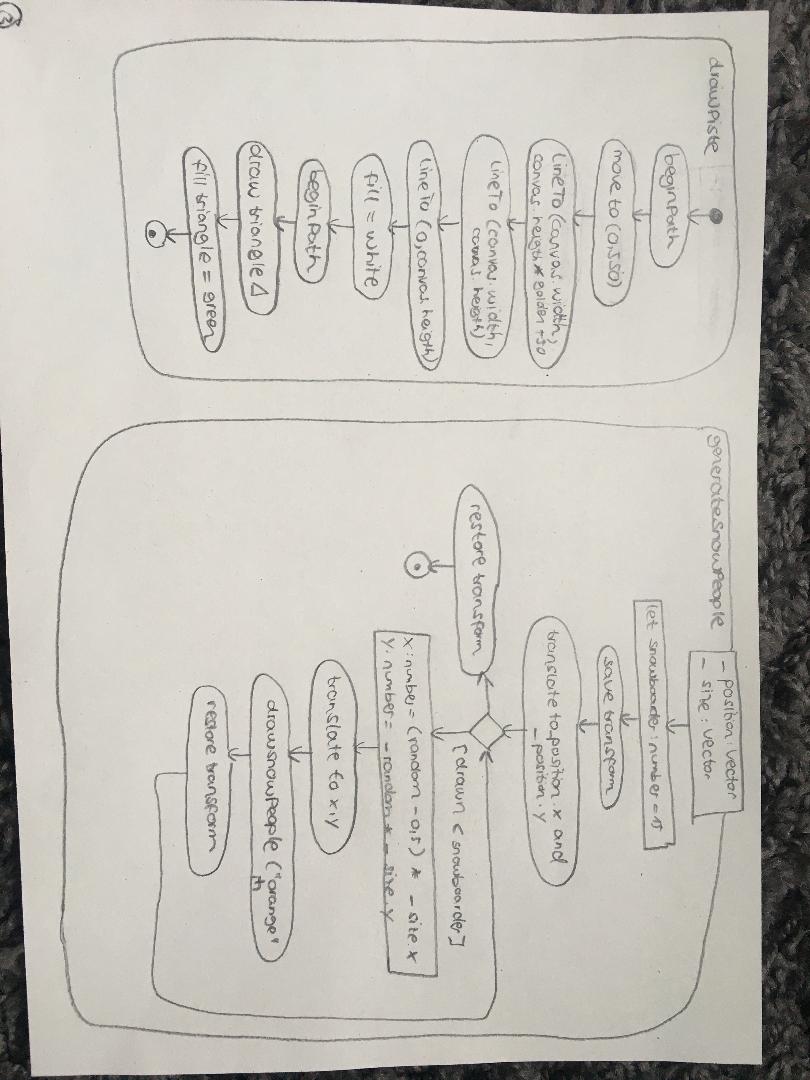 drawPiste
beginPath
move to (0,550)
LineTo (canvas.width,
canvas.heigth * golden + 30
LineTo (canvas.width,
canvas.heigth)
LineTo (0,canvas.heigth)
fill = white
beginPath
draw triangle Δ
fill triangle = green
generateSnowPeople
- position: vector
- size: vector
let snowboarder: number = 15
save transform
translate to_position.x and
_position.y
[drawn < snowboarder]
restore transform
x: number = (random - 0,5) * _size.x
y: number = - random * _size.y
translate to x,y
drawSnowPeople ("orange"
restore transform
3